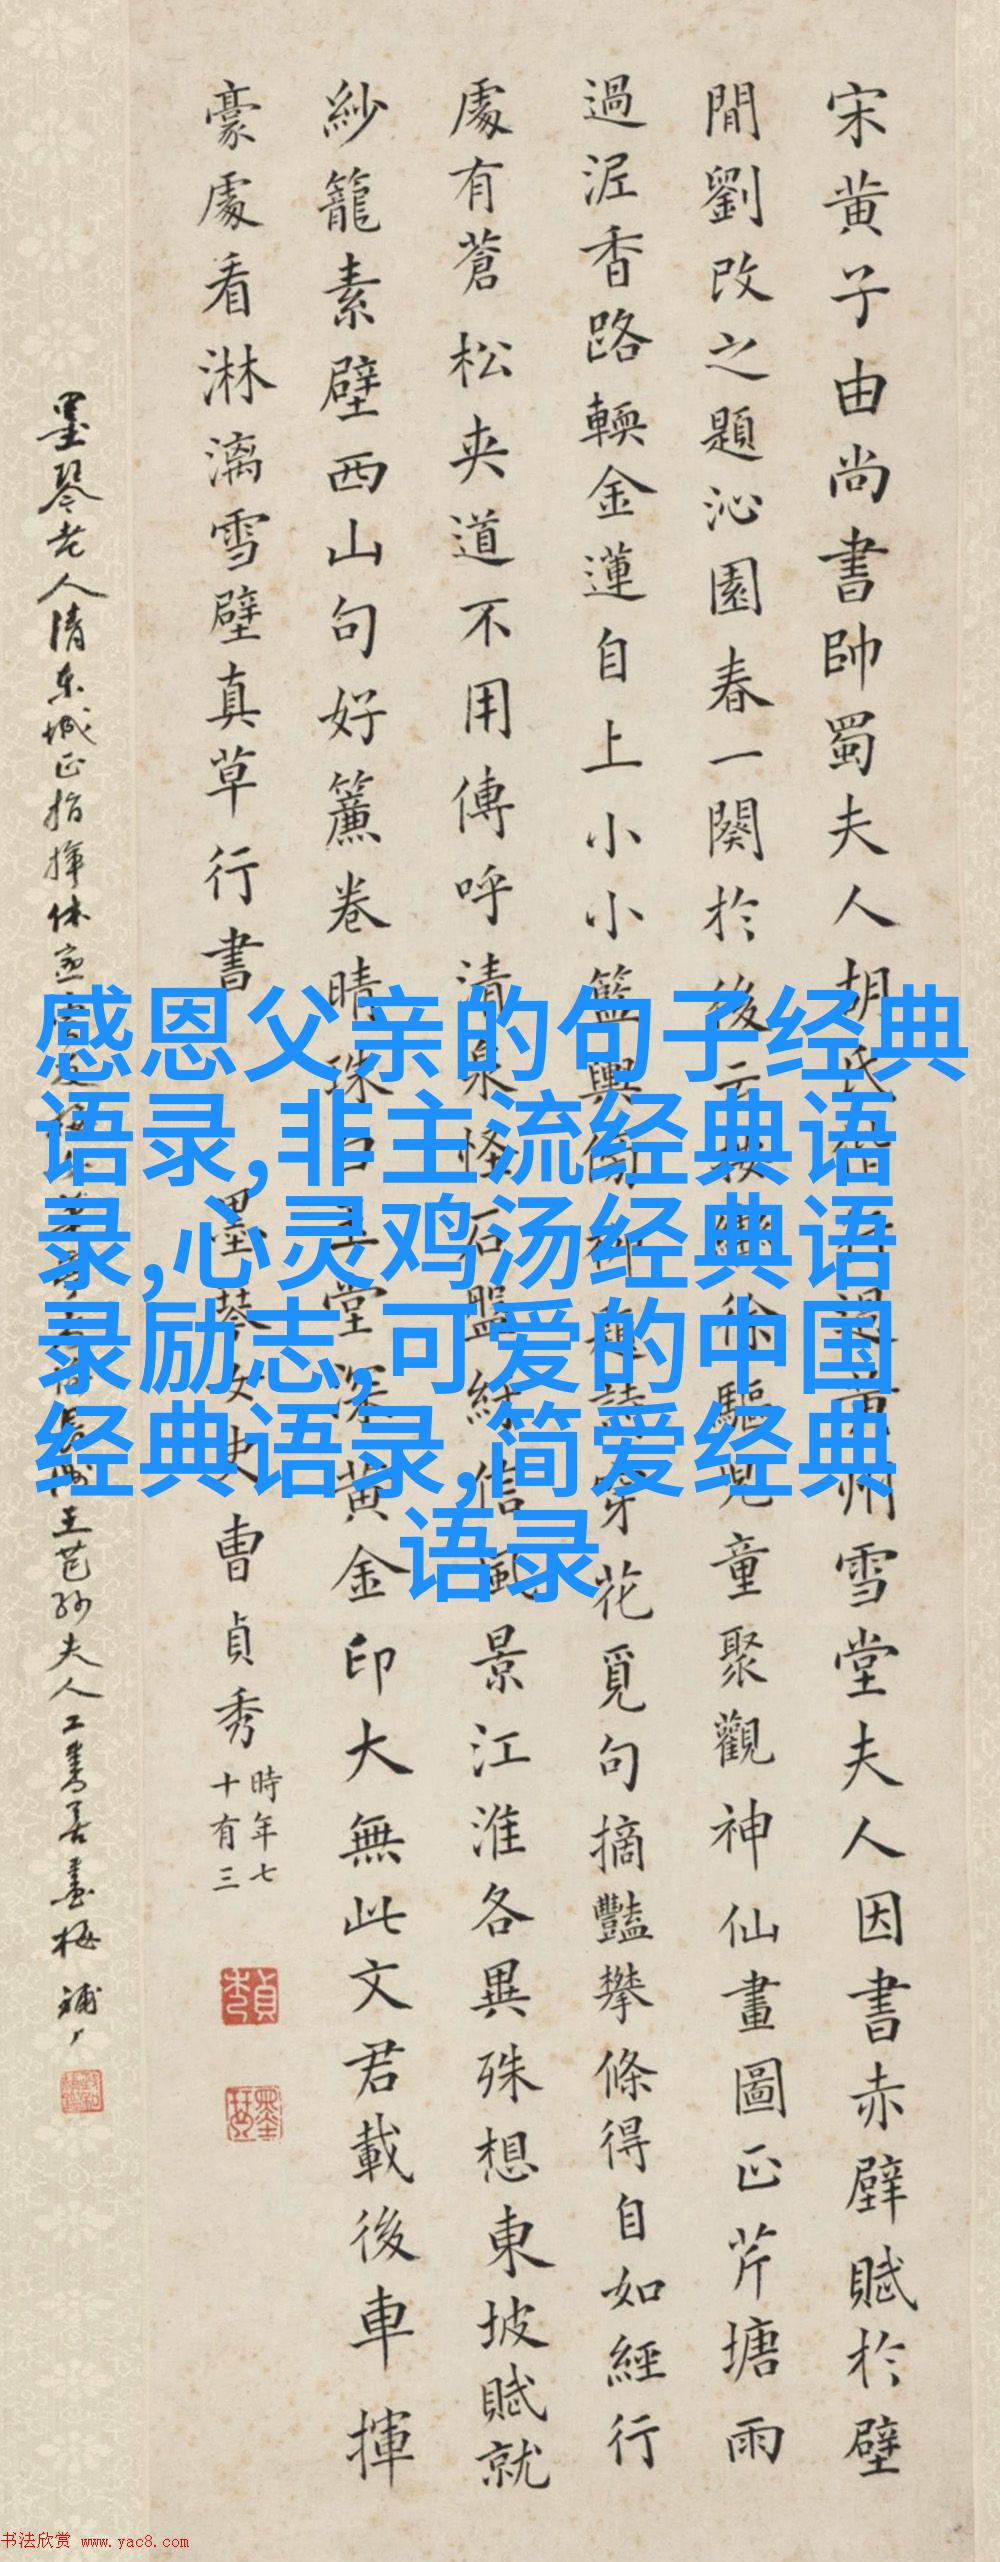 宋黄子由尚書帥蜀夫人胡氏偕行過黄州雪堂夫人因書赤壁賦於壁
間劉改之題沁園春一闋於後云按轡徐驅兒童聚觀神仙畫圖正芹塘雨
過泥香路輭金蓮自上小小籃輿傍柳題詩穿花覓句摘豔攀條得自如經行
處有蒼松夾道不用傳呼清泉怪石盤紆信風景江淮各異殊想東坡賦就
紗籠素壁西山句好簾卷晴珠白玉堂深黄金印大無此文君載後車揮
豪處看淋漓雪壁真草行書 墨琴女史曹貞秀
時年七
十有三
墨琴老人清東城正指揮休 王芑孫夫人工書善畫梅
感恩父亲的句子经典
语录,非主流经典语
录,心灵鸡汤经典语
录励志,可爱的中国
经典语录,简爱经典
语录
书法欣赏 www.yac8.com